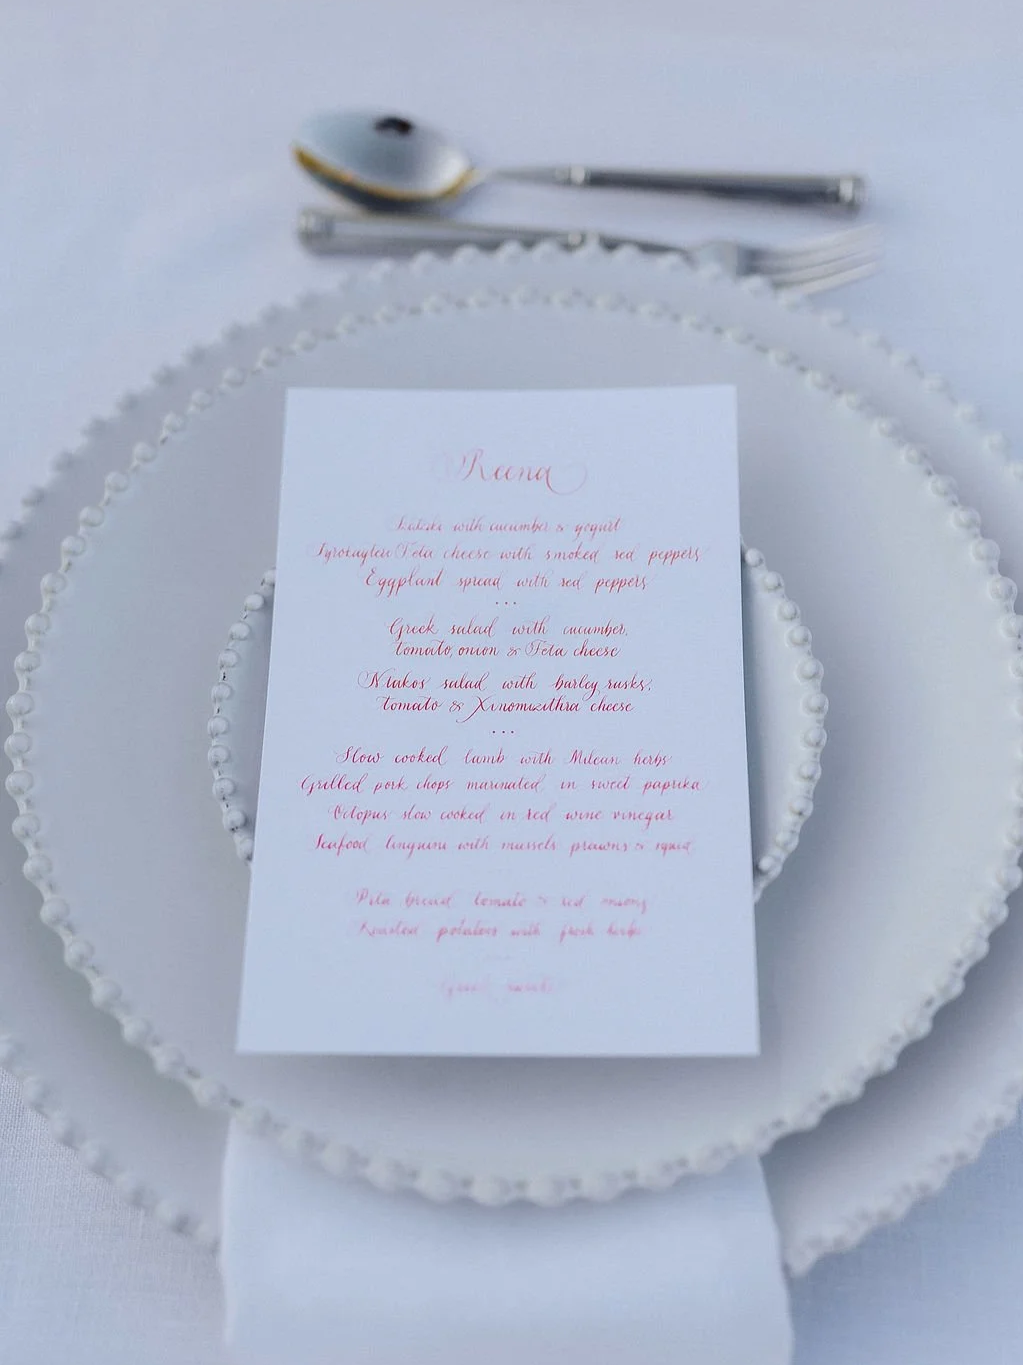 Reena
with cucumber & yogurt
Feta cheese with smoked red peppers
Eggplant spread with red peppers
...
Greek salad with cucumber,
tomato, onion & Feta cheese
Ntakos salad with barley rusks,
tomato & Xinomizithra cheese
...
Slow cooked lamb with Milean herbs
Grilled pork chops marinated in sweet paprika
Octopus slow cooked in red wine vinegar
Seafood linguini with mussels prawns & squid
Pita bread tomato & red onions
Roasted potatoes with fresh herbs
Greek